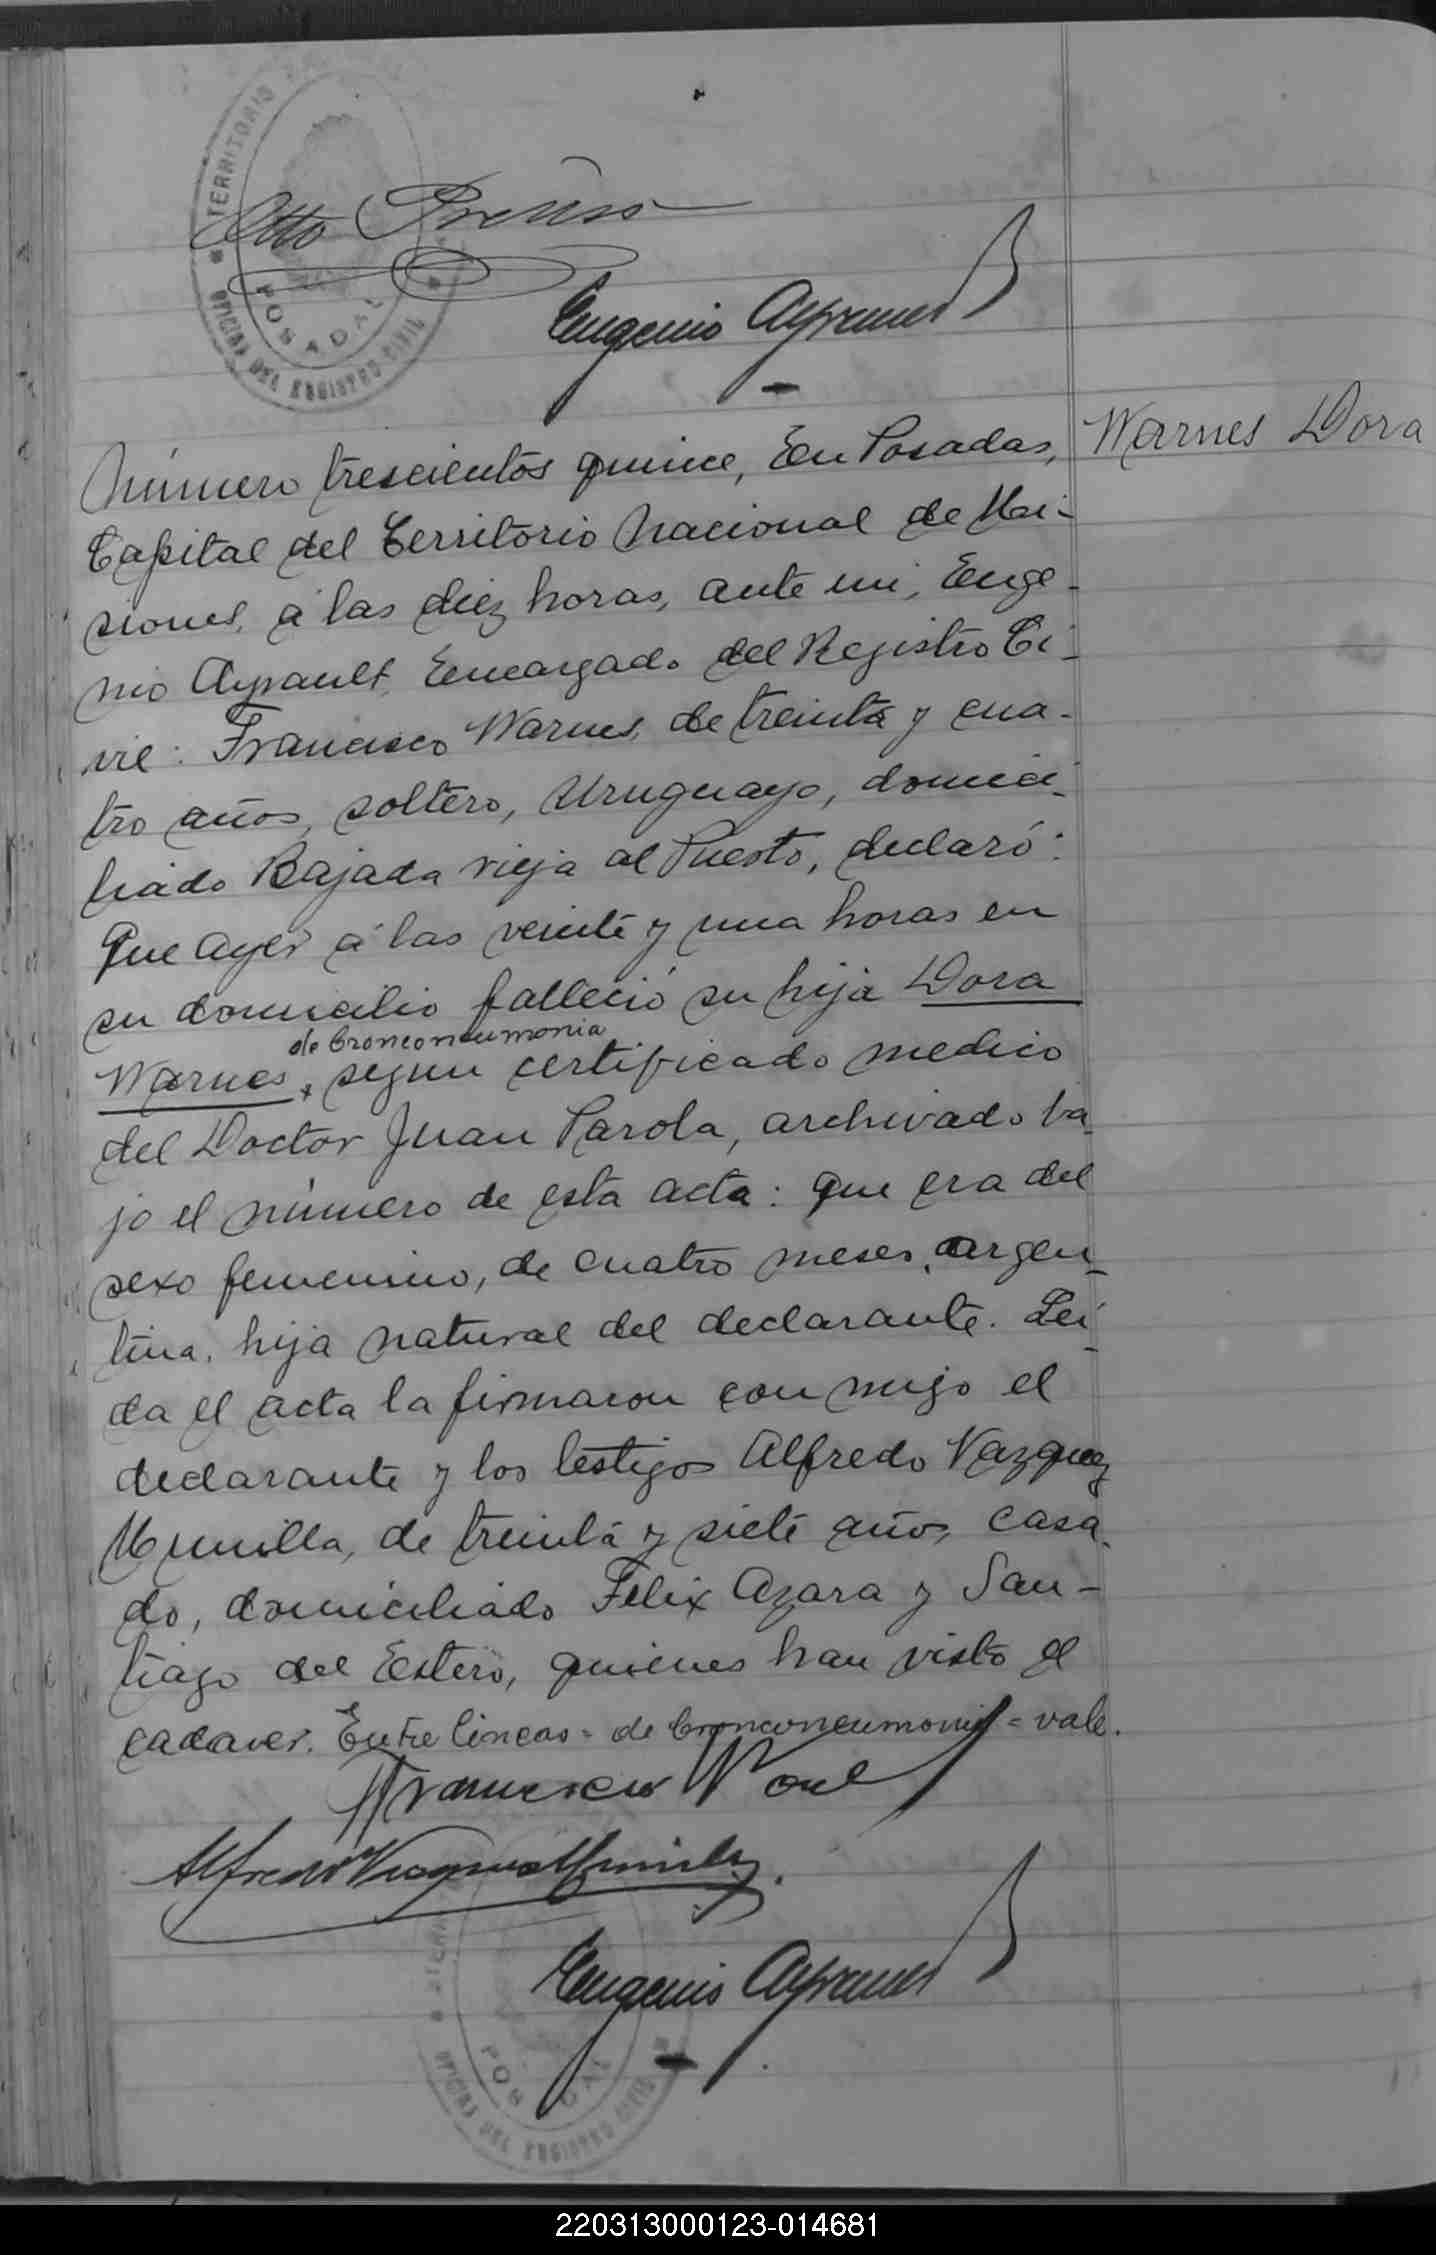 TERRITORIO
POSADAS
OFICINA DEL REGISTRO CIVIL
Otto
Eugenio Ayrault
Warnes Dora
Número trescientos quince, En Posadas,
Capital del Territorio Nacional de Mi-
siones, á las diez horas, ante mi, Euge-
nio Ayrault, Encargado del Registro Ci-
vil: Francisco Warnes, de treinta y cua-
tro años, soltero, Uruguayo, domici-
liado Bajada vieja al Puesto, declaró:
Que ayer á las veinte y una horas en
su domicilio falleció su hija Dora
de bronconeumonia
Warnes, segun certificado medico
del Doctor Juan Parola, archivado ba-
jo el número de esta acta: que era del
sexo femenino, de cuatro meses, argen-
tina, hija natural del declarante. Lei-
da el acta la firmaron con migo el
declarante y los testigos Alfredo Vazquez
Munilla, de treinta y siete años, casa-
do, domiciliado Felix Azara y San-
tiago del Estero, quienes han visto el
cadaver. Entre lineas = de bronconeumonia = vale.
Francisco
Alfredo Vazquez Munilla
Eugenio Ayrault
OFICINA DEL REGISTRO CIVIL
220313000123-014681